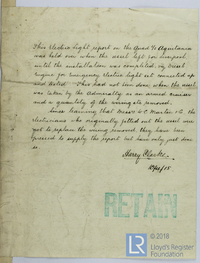 This Electric Light report on the Quad Sc Aquitania
was held over when the vessel left for Liverpool
until the installation was completed, ie, Diesel
Engine for Emergency electric light set connected up
and tested. This had not been done when the vessel
was taken by the Admiralty as an armed cruiser
and a quantity of the wiring etc removed.
Since learning that Messrs
electricians who originally fitted out the vessel were
yet to replace the wiring removed, they have been
pressed to supply the report but have only just done
so.
Harry
RETAIN
© 2018
LR
Lloyd's Register
Foundation